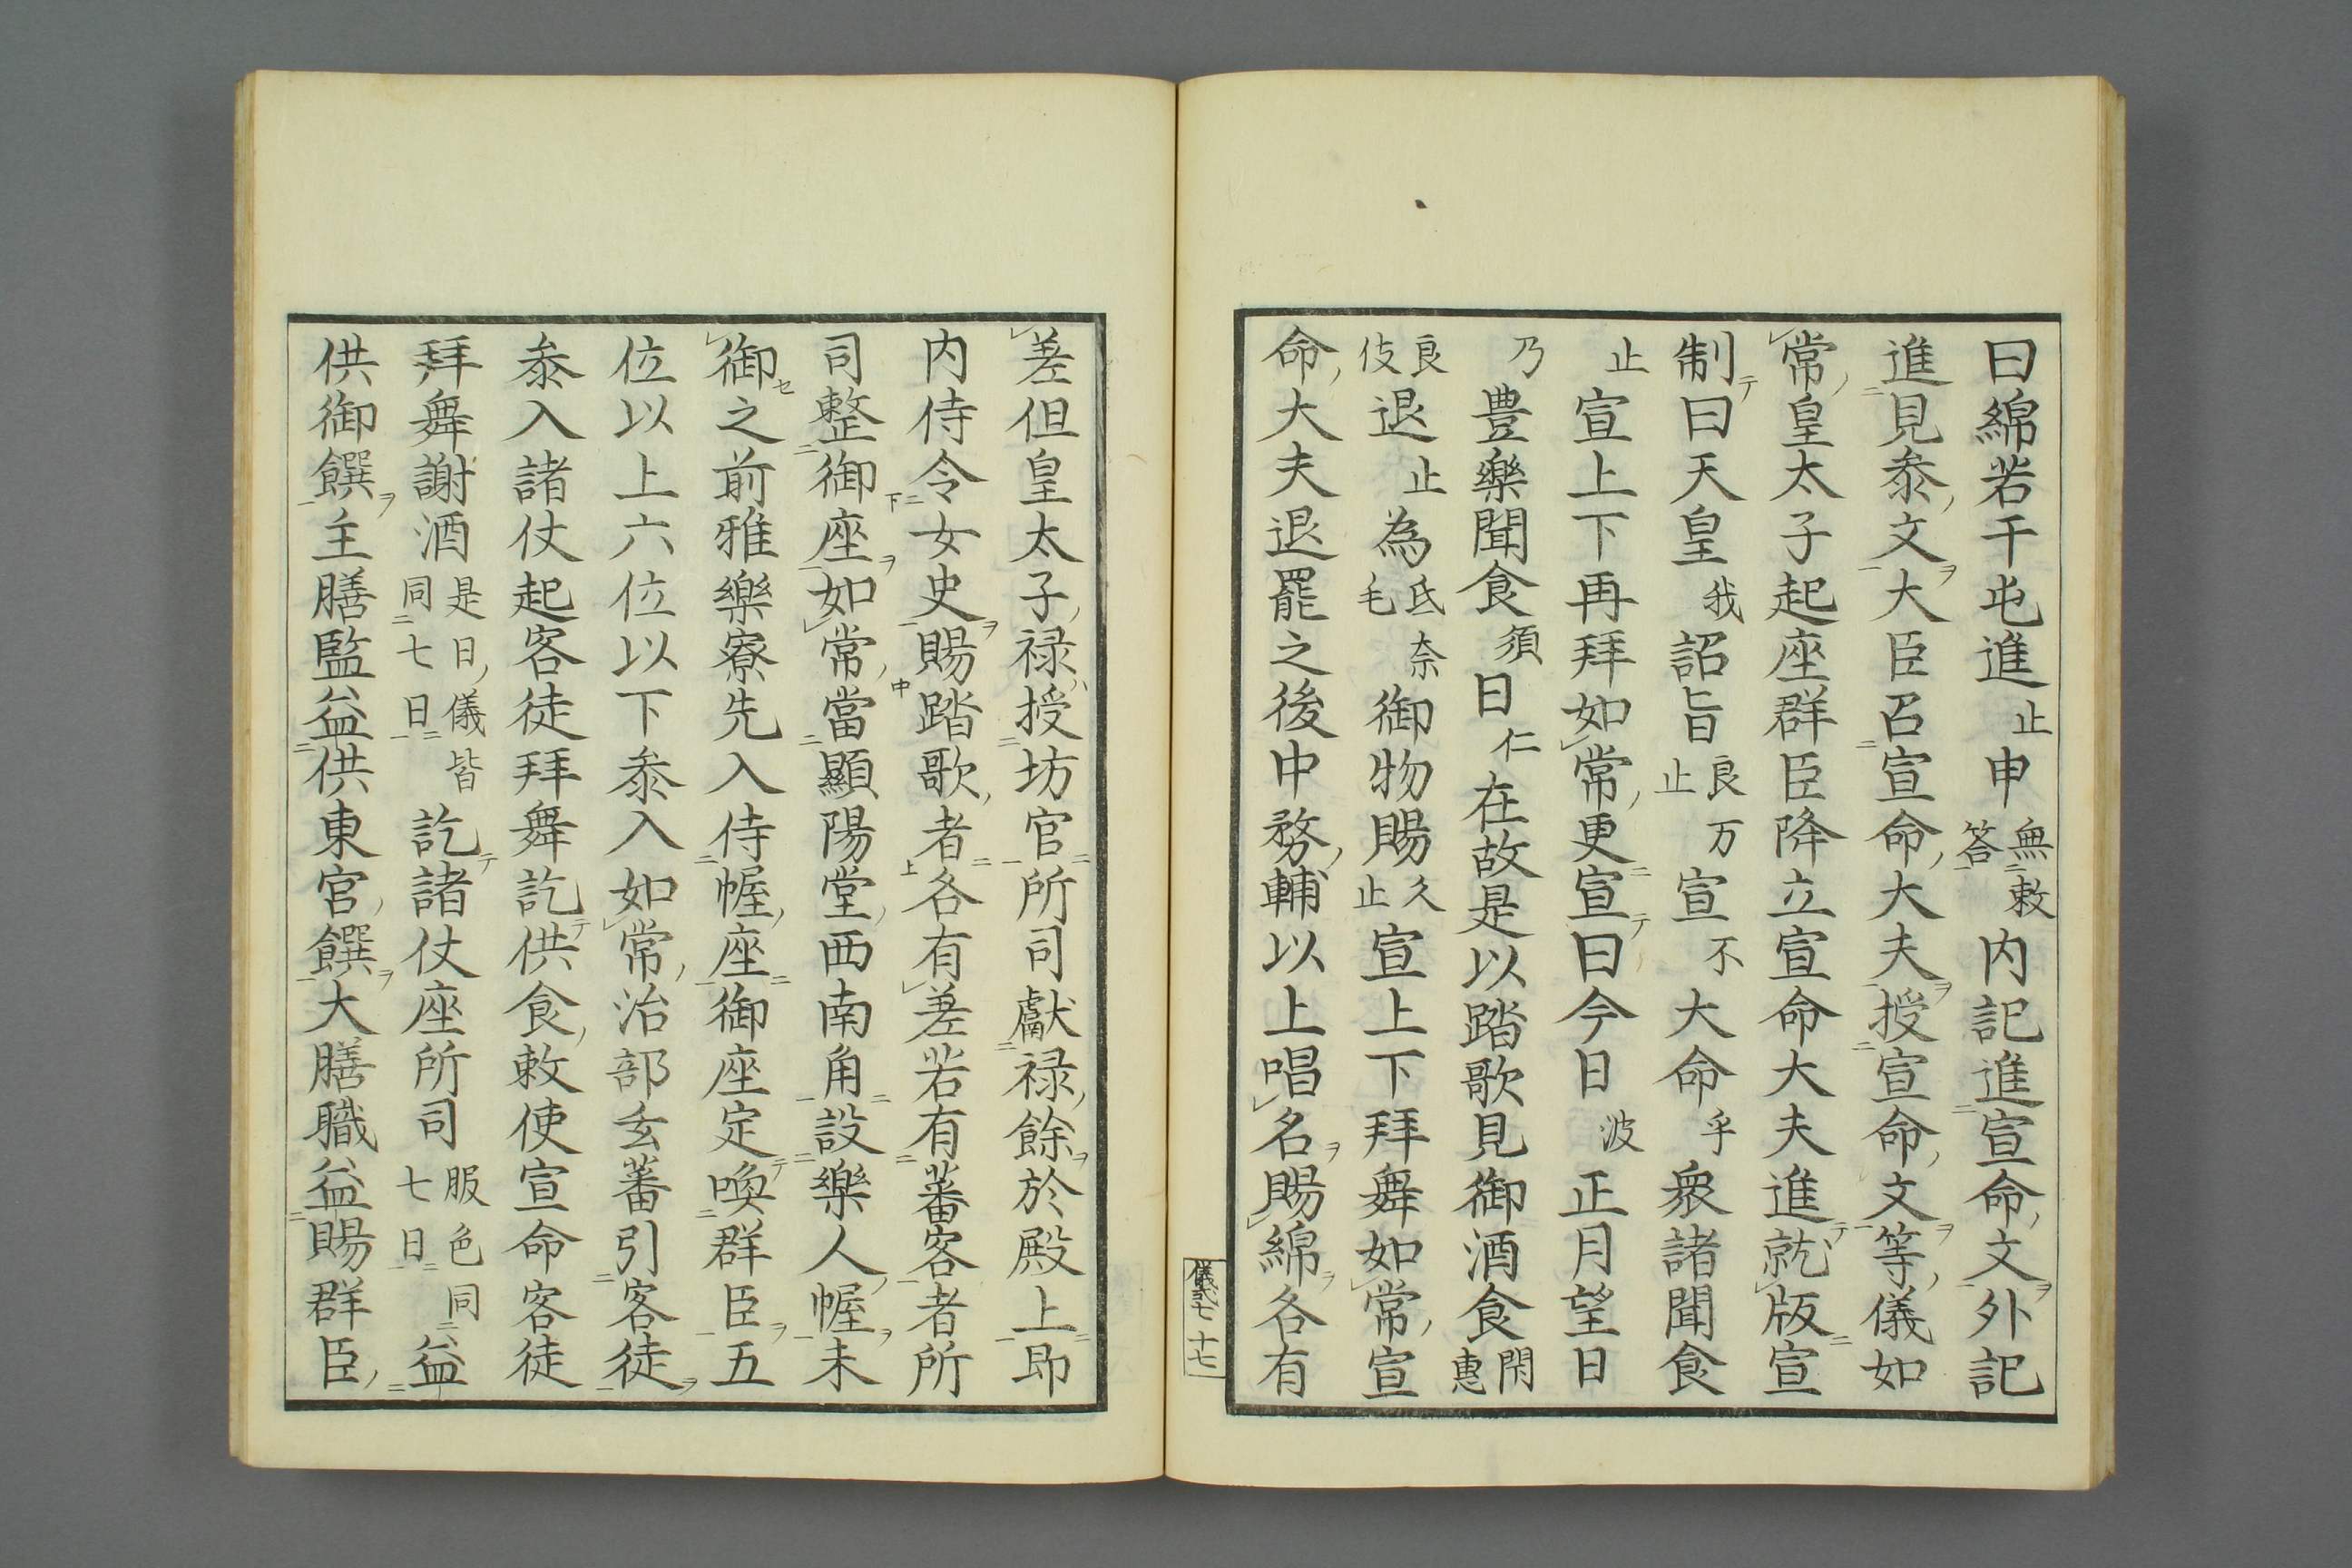 曰綿若干屯進止申無勅答内記進宣命文外記
進見叅文大臣召宣命大夫授宣命文等儀如
常皇太子起座群臣降立宣命大夫進就版宣
制曰天皇我詔旨良万止宣不大命乎衆諸聞食
止宣上下再拜如常更宣曰今日波正月望日
乃豊樂聞食須日仁在故是以踏歌見御酒食閇惠
良伎退止為氐奈毛御物賜久止宣上下拜舞如常宣
命大夫退罷之後中務輔以上唱名賜綿各有
儀式七 十七
差但皇太子禄授坊官所司獻禄餘於殿上即
内侍令女史賜踏歌者各有差若有蕃客者所
司整御座如常當顯陽堂西南角設樂人幄未
御之前雅樂寮先入侍幄座御座定喚群臣五
位以上六位以下叅入如常治部玄蕃引客徒
叅入諸仗起客徒拜舞訖供食勅使宣命客徒
拜舞謝酒是日儀皆同七日訖諸仗座所司服色同七日益
供御饌主膳監益供東宮饌大膳職益賜群臣